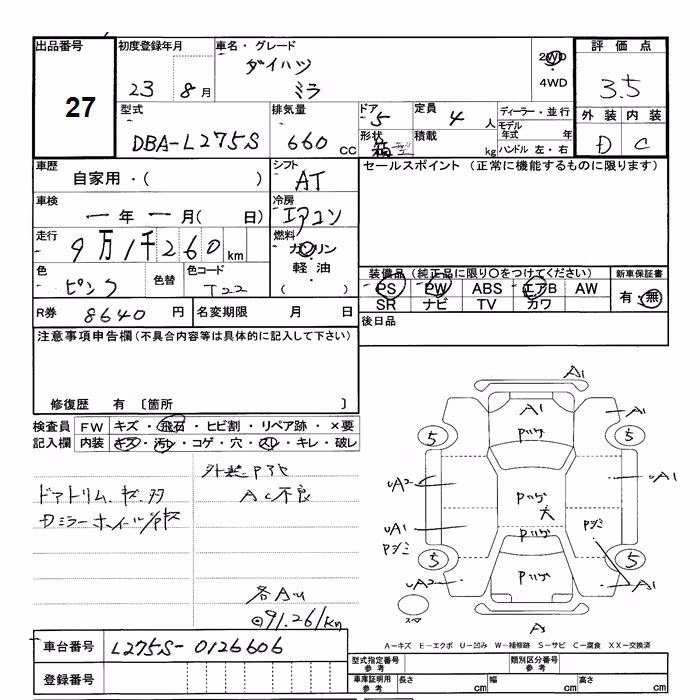 出品番号 初度登録年月 車名・グレード 評価点
27 23 8月 ダイハツ ミラ 2WD ・ 4WD 3.5
型式 排気量 ドア 定員 ディーラー・並行 外装 内装
DBA-L275S 660 CC 5 4人 モデル年式 年 D C
形状 箱型 積載 kg ハンドル 左・右
車歴 シフト セールスポイント (正常に機能するものに限ります)
自家用・( ) AT
車検 冷房
一年一月( 日) エアコン
走行 燃料
9万1千260km ガソリン・軽油・( )
色 色替 色コード 装備品(純正品に限り○をつけてください) 新車保証書
ピンク T22 PS PW ABS エアB AW 有・無
SR ナビ TV カワ
R券 8640円 名変期限 月 日 後日品
注意事項申告欄(不具合内容等は具体的に記入して下さい)
修復歴 有 〔箇所 〕
検査員 FW キズ・飛石・ヒビ割・リペア跡・×要
記入欄 内装 キズ・汚レ・コゲ・穴・スレ・キレ・破レ
外装
ドアトリム
AC不良
Dミラーホイール
各AU
91.261km
A1
A1 A1
Pツゲ
5 5
UA2 Pツゲ UA1
大
UA1 Pツゲ
Pシミ Pシミ
5 5
UA2 Pツゲ A1
スペア
A-キズ E-エクボ U-凹み W-補修跡 S-サビ C-腐食 XX-交換済
車台番号 L275S-0126606
型式指定番号 参考 類別区分番号 参考
登録番号 車庫証明用 参考 長さ cm 幅 cm 高さ cm